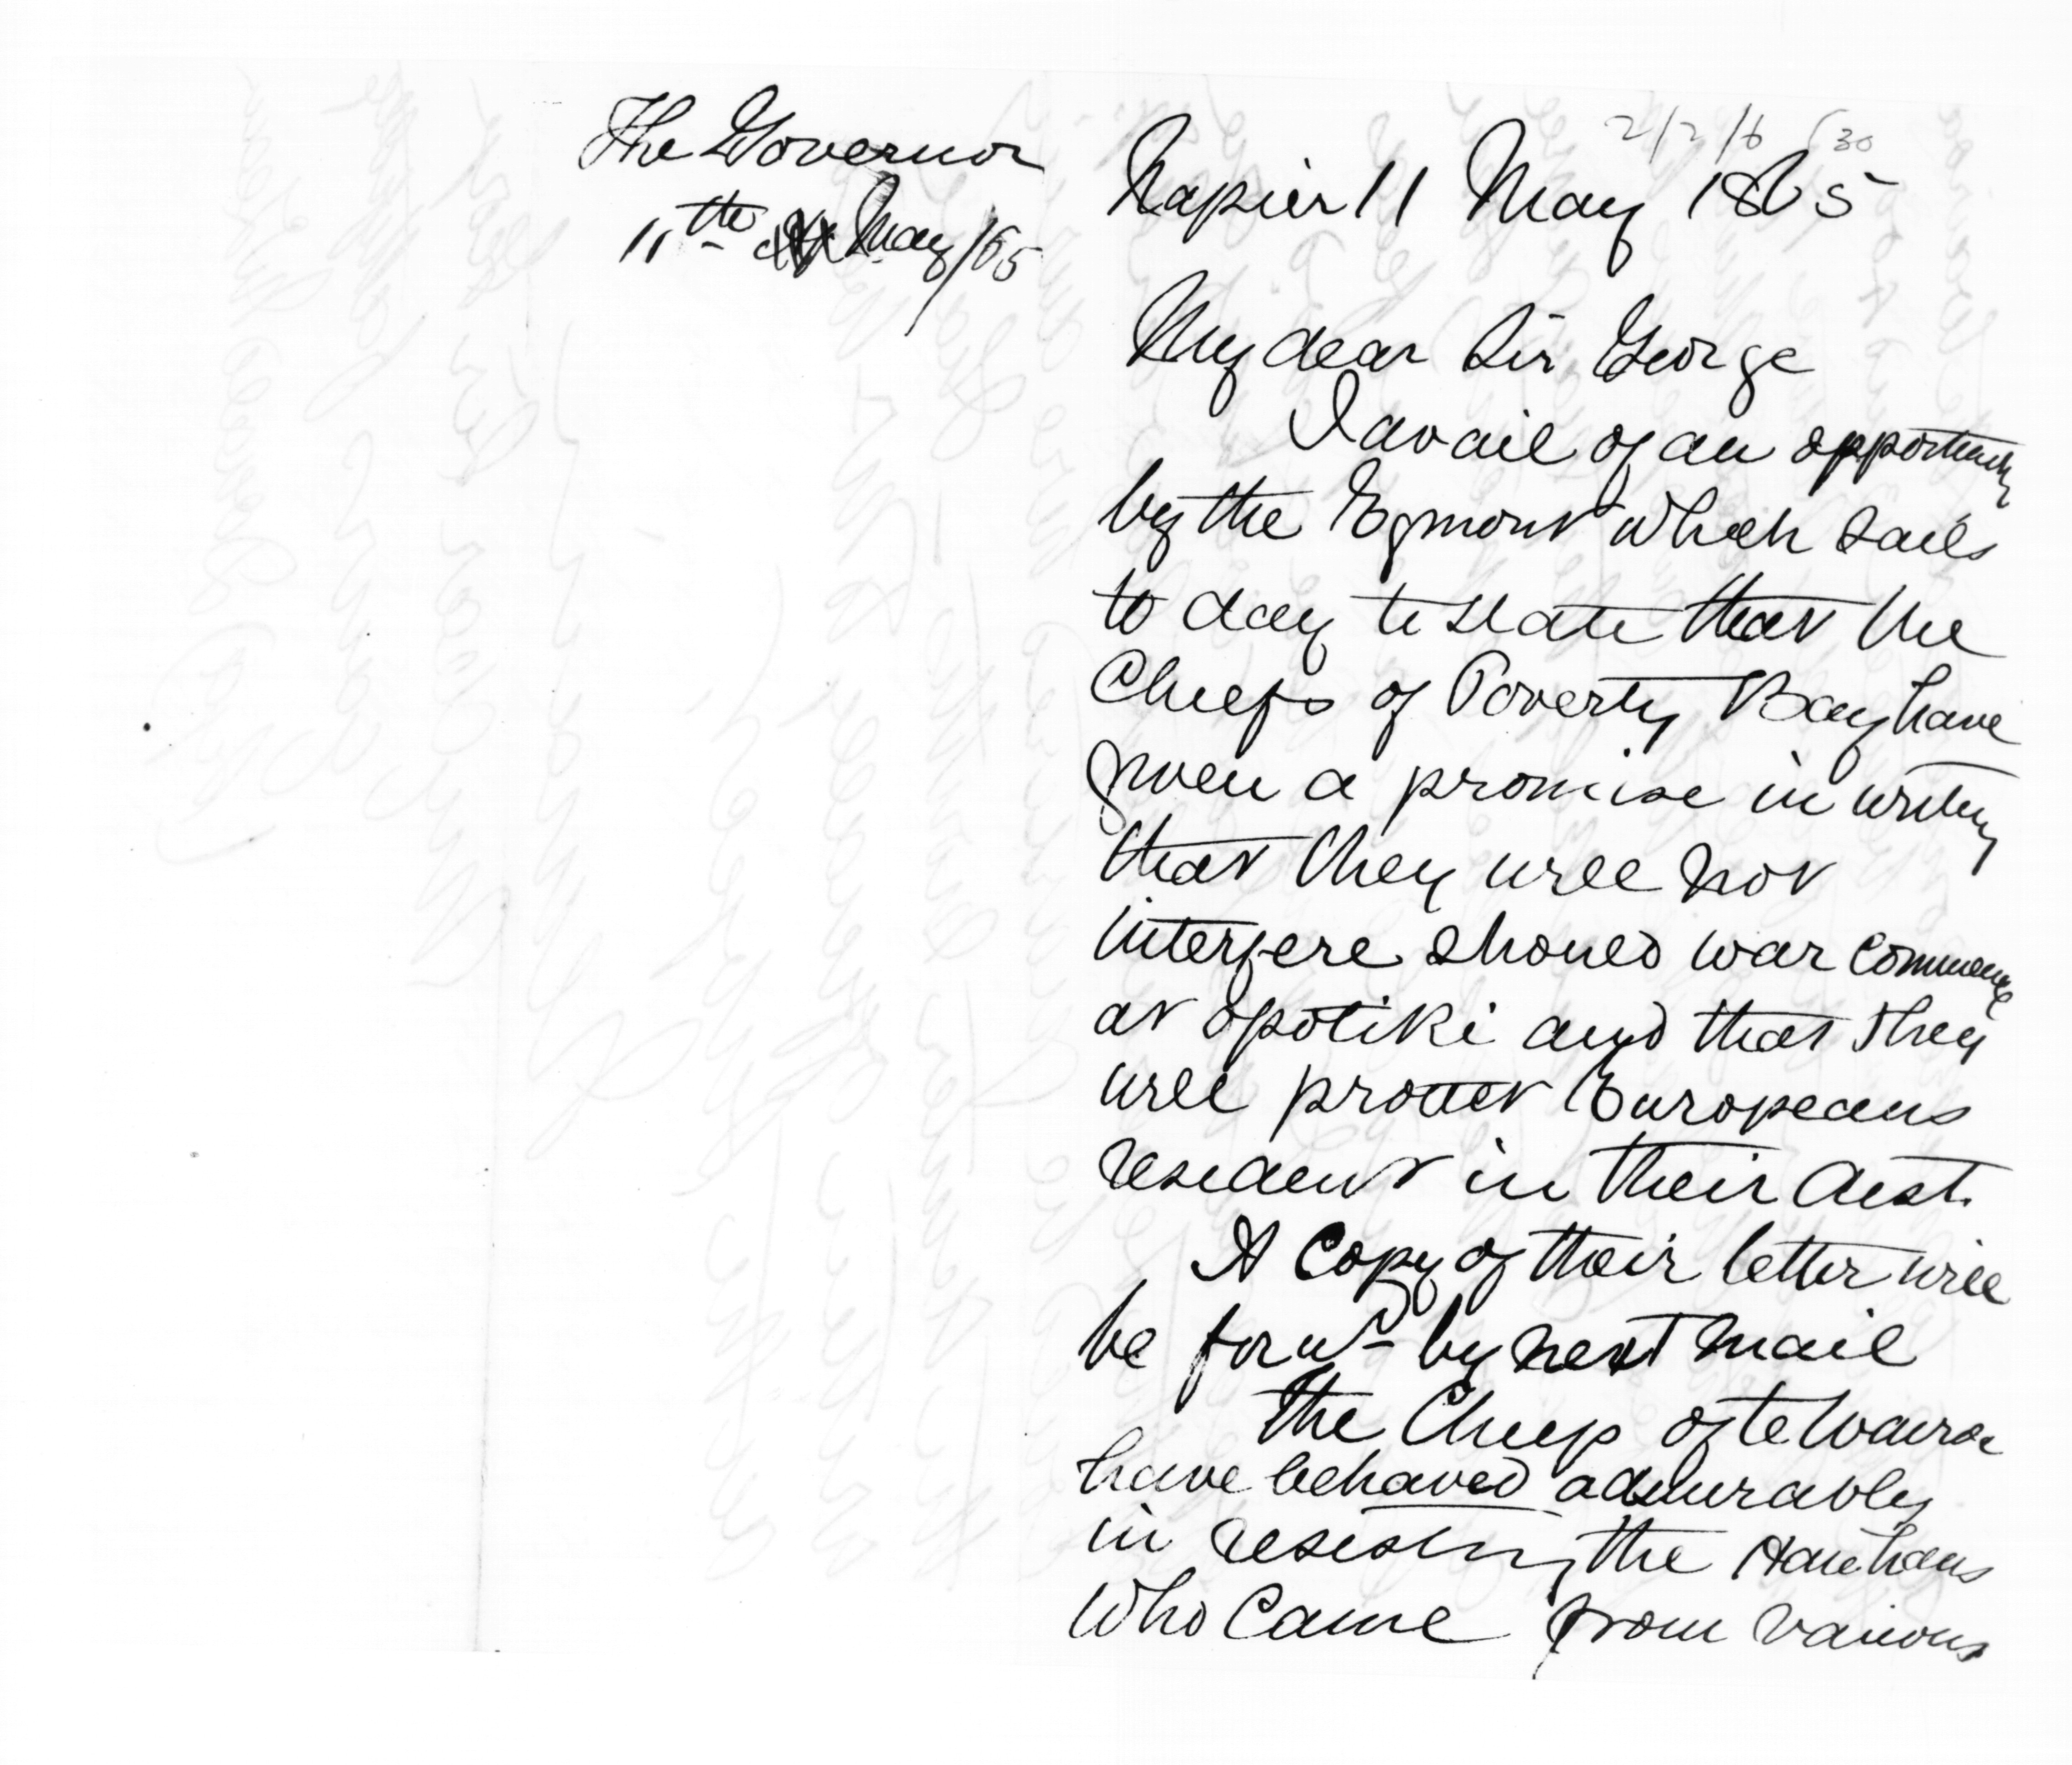 The Governor
11th May/65
Napier 11 May 1865
My dear Sir George
I avail of an opportunity
by the Egmont which sails
to day to state that the
Chiefs of Poverty Bay have
given a promise in writing
that they will not
interfere should war commence
at opotiki and that they
will protect Europeans
resident in their dist.
A Copy of their letter will
be forwd by next mail
The Chiefs of te Wairoa
have behaved admirably
in resisting the Hauhaus
who Came from various